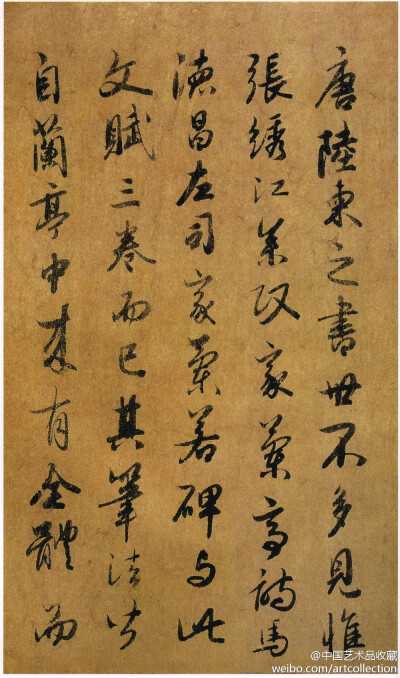 唐陸柬之書世不多見惟
張綉江叅政家蘭亭詩馬
德昌左司家蘭若碑与此
文賦三卷而已其筆法皆
自蘭亭中来有全體而
@中国艺术品收藏
weibo.com/artcollection